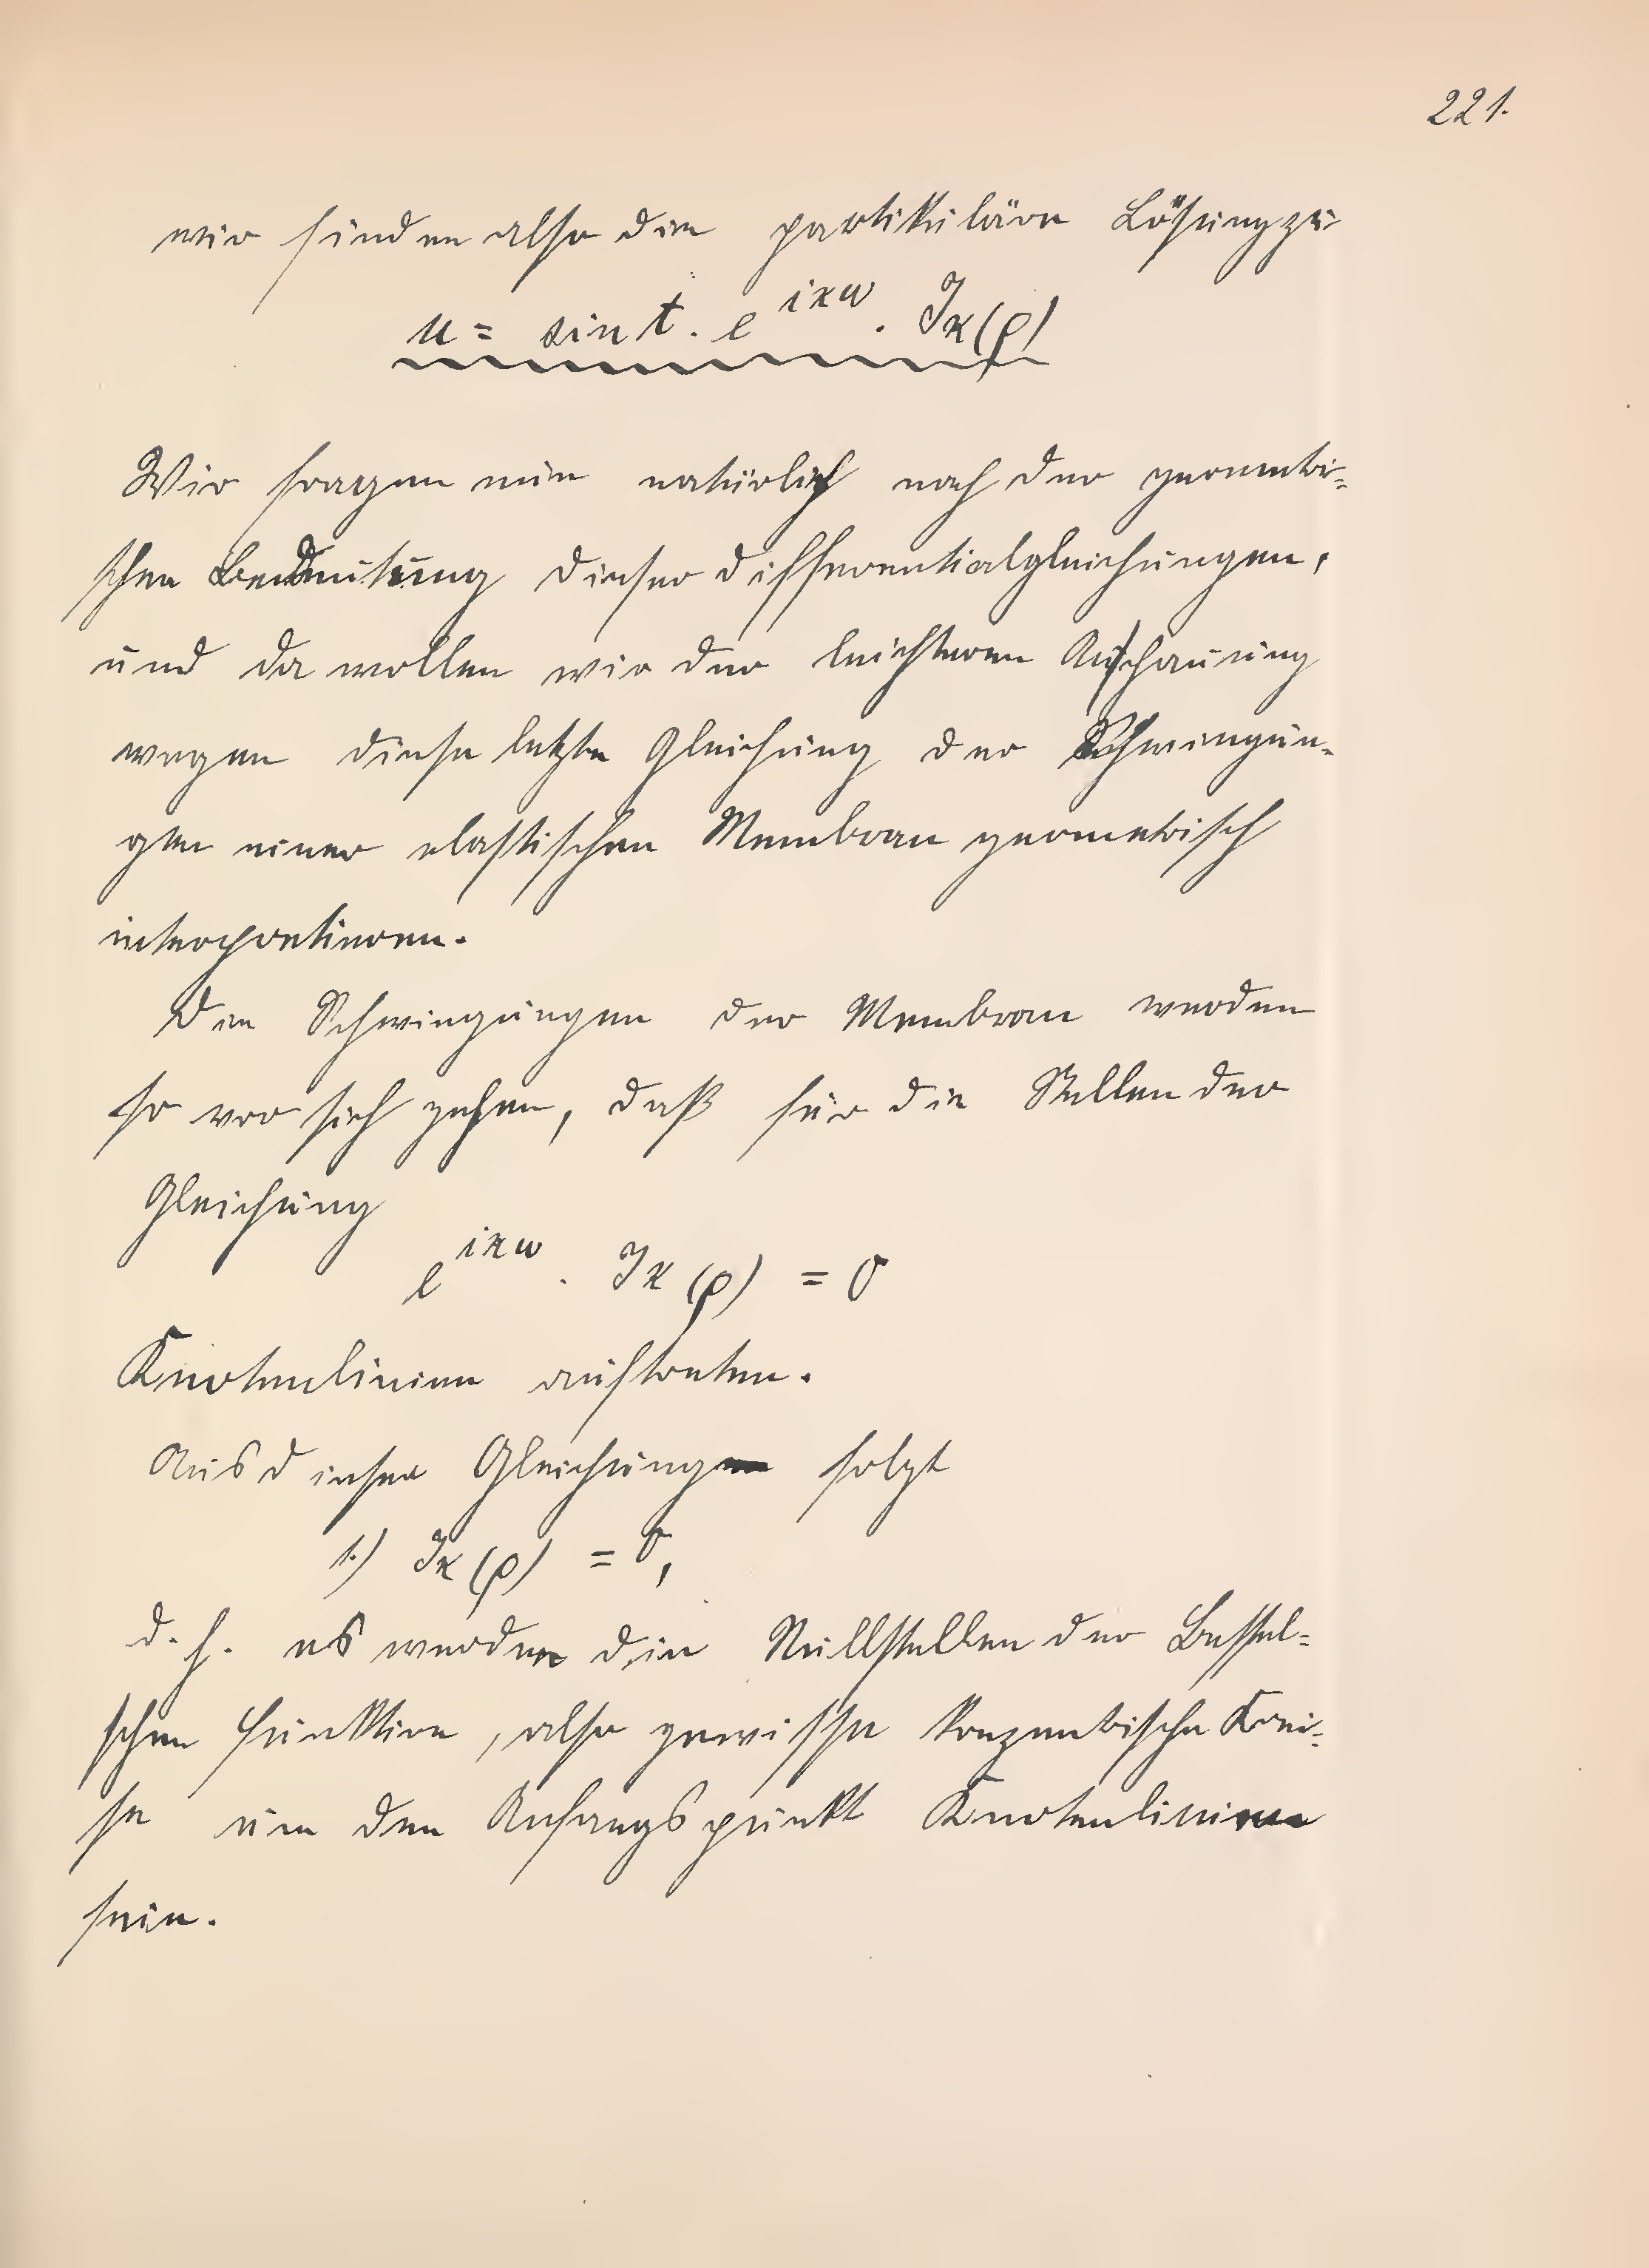 221.
wir finden also die partikuläre Lösung zu
u = sin t . e^{iκω} . J_κ(ρ)
Wir fragen nun natürlich nach der geometri-
schen Bedeutung dieser Differentialgleichungen,
und da wollen wir der leichteren Anschauung
wegen diese letzte Gleichung der Schwingun-
gen einer elastischen Membran geometrisch
interpretieren.
Die Schwingungen der Membran werden
so vor sich gehen, daß für die Stellen der
Gleichung
e^{iκω} . J_κ(ρ) = 0
Knotenlinien auftreten.
Aus dieser Gleichung folgt
1.) J_κ(ρ) = 0,
d. h. es werden die Nullstellen der Bessel-
schen Funktion, also gewisse konzentrische Krei-
se um den Anfangspunkt Knotenlinien
sein.